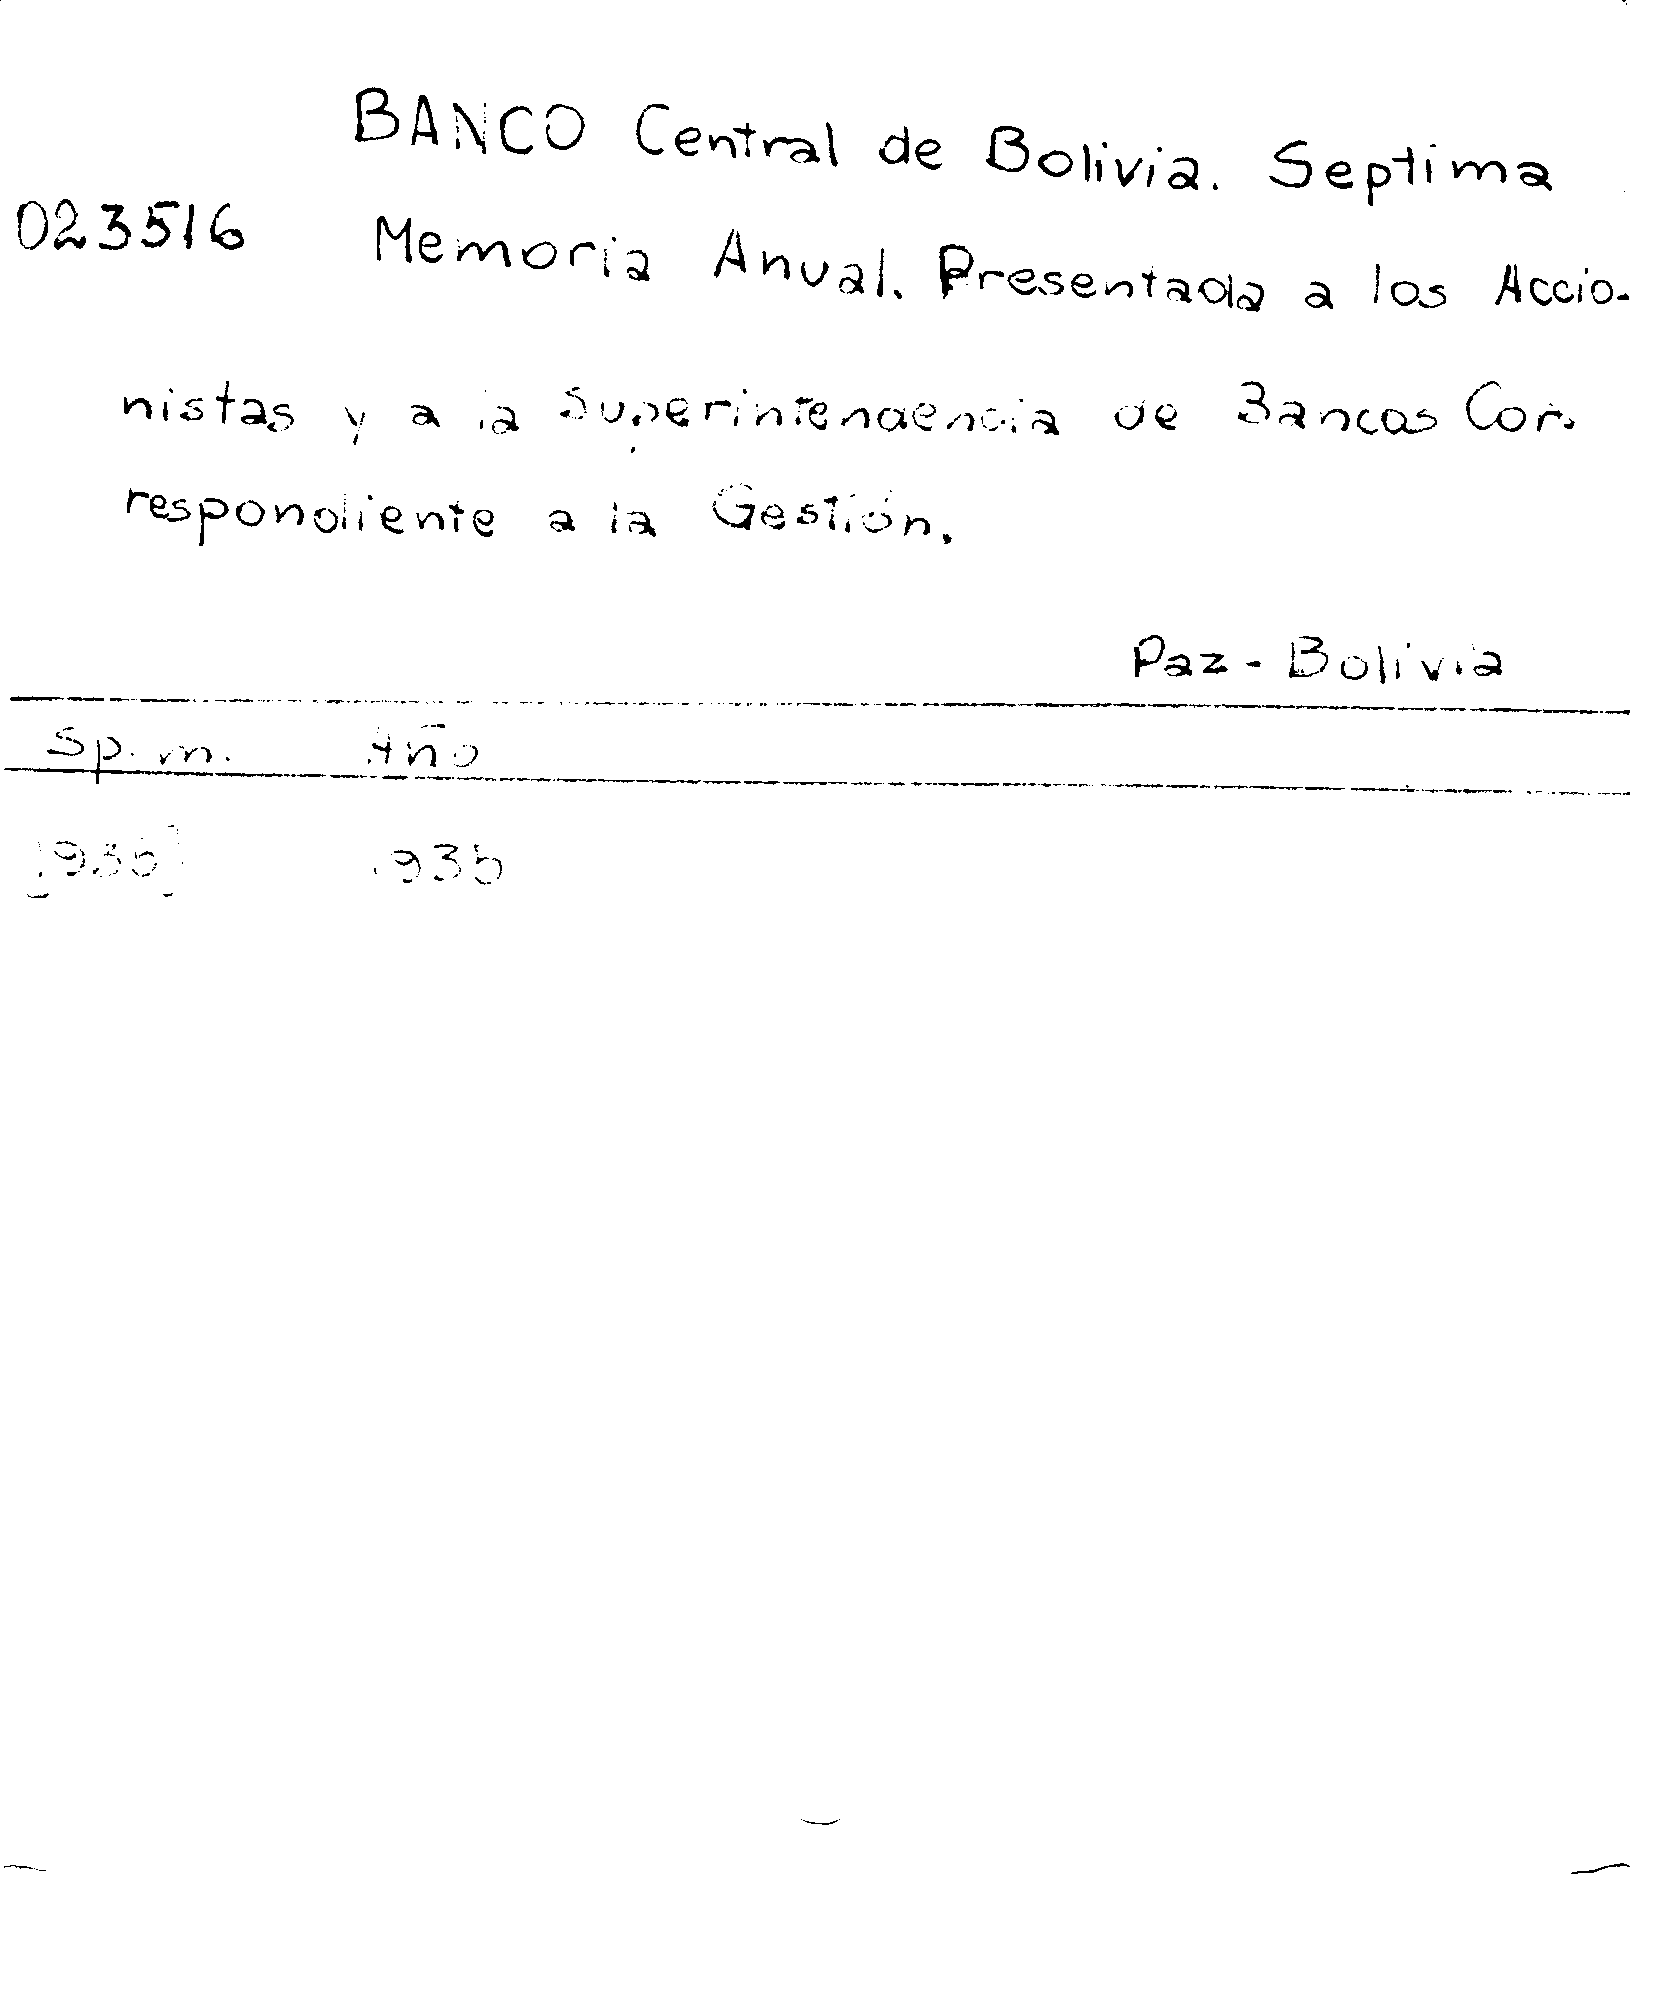 BANCO Central de Bolivia. Septima
023516 Memoria Anual. Presentada a los Accio-
nistas y a la Superintendencia de Bancos Cor-
respondiente a la Gestión.
Paz - Bolivia
Sp. m. Año
[1935] 1935